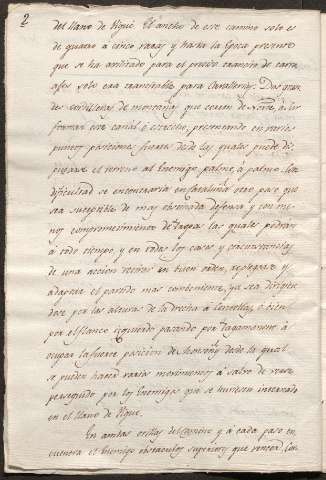 2
del llano de Vique. El ancho de este camino solo es
de quatro à cinco varas y hasta la epoca presente
que se ha arbitrado para el preciso transito de carru
ages solo era caminable para Cavallerias. Dos gran
des cordilleras de montañas que corren de Norte à Sur
forman este canal ó estrecho, presentando en varios
puntos posiciones fuertes desde las quales puede dis
putarse el terreno al Enemigo palmo, à palmo. Con
dificultad se encontraria en Cataluña otro paso que
sea suceptible de mas obstinada defensa y con me
nos comprometimiento de tropas las quales podran
à todo tiempo, y en todos los casos y circunstancias
de una accion retirarse en buen orden, replegarse y
adoptar el partido mas conveniente, ya sea dirigien
dose por las alturas de la drecha à Centellas, ó bien
por el flanco izquierdo pasando por Tagamanent à
ocupar la fuerte posicion de Monseny desde la qual
se pueden hacer varios movimientos à salvo de verse
perseguido por los Enemigos que se huviesen internado
en el llano de Vique.
En ambas orillas del camino y à cada paso en
cuentra el Enemigo obstaculos superiores que vencer. Con